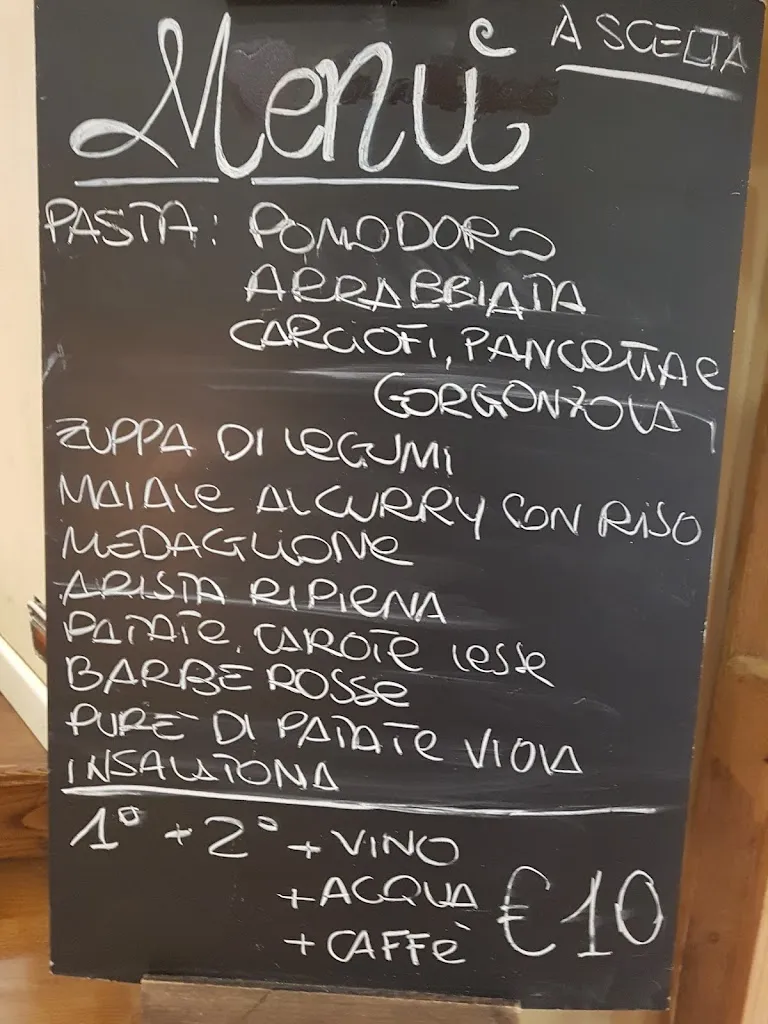 À SCELTA
Menù
PASTA: POMODORO
ARRABBIATA
CARCIOFI, PANCETTA e
GORGONZOLA
ZUPPA DI LEGUMI
MAIALE AL CURRY CON RISO
MEDAGLIONE
ARISTA RIPIENA
PATATE, CAROTE LESSE
BARBE ROSSE
PURÈ DI PATATE VIOLA
INSALATONA
1° + 2° + VINO
+ ACQUA €10
+ CAFFÈ